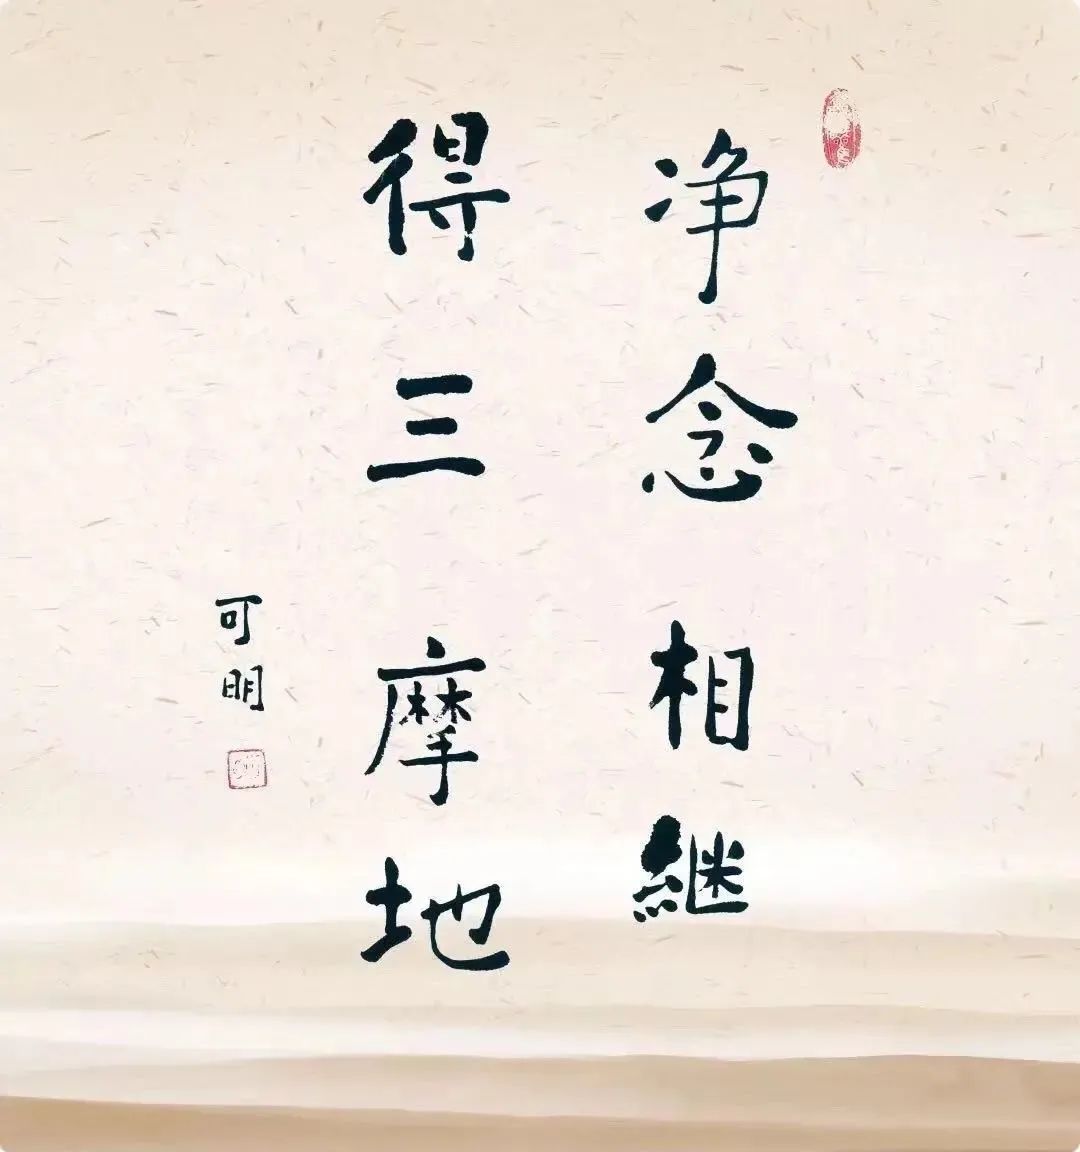 净念相继
得三摩地
可明